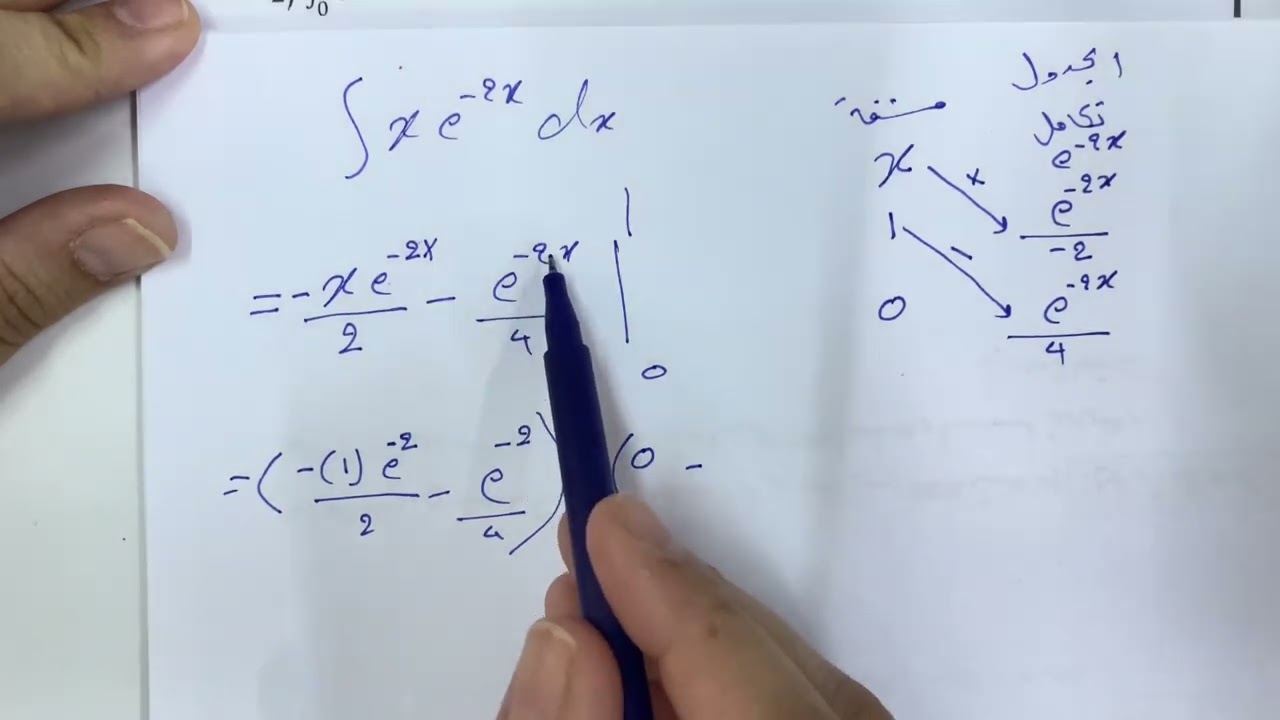 ∫ x e^{-2x} dx
= - \frac{x e^{-2x}}{2} - \frac{e^{-2x}}{4} |_0^1
= ( \frac{-(1) e^{-2}}{2} - \frac{e^{-2}}{4} ) (0 -
الجدول
مشتقة تكامل
e^{-2x}
x + \frac{e^{-2x}}{-2}
1 - \frac{e^{-2x}}{4}
0